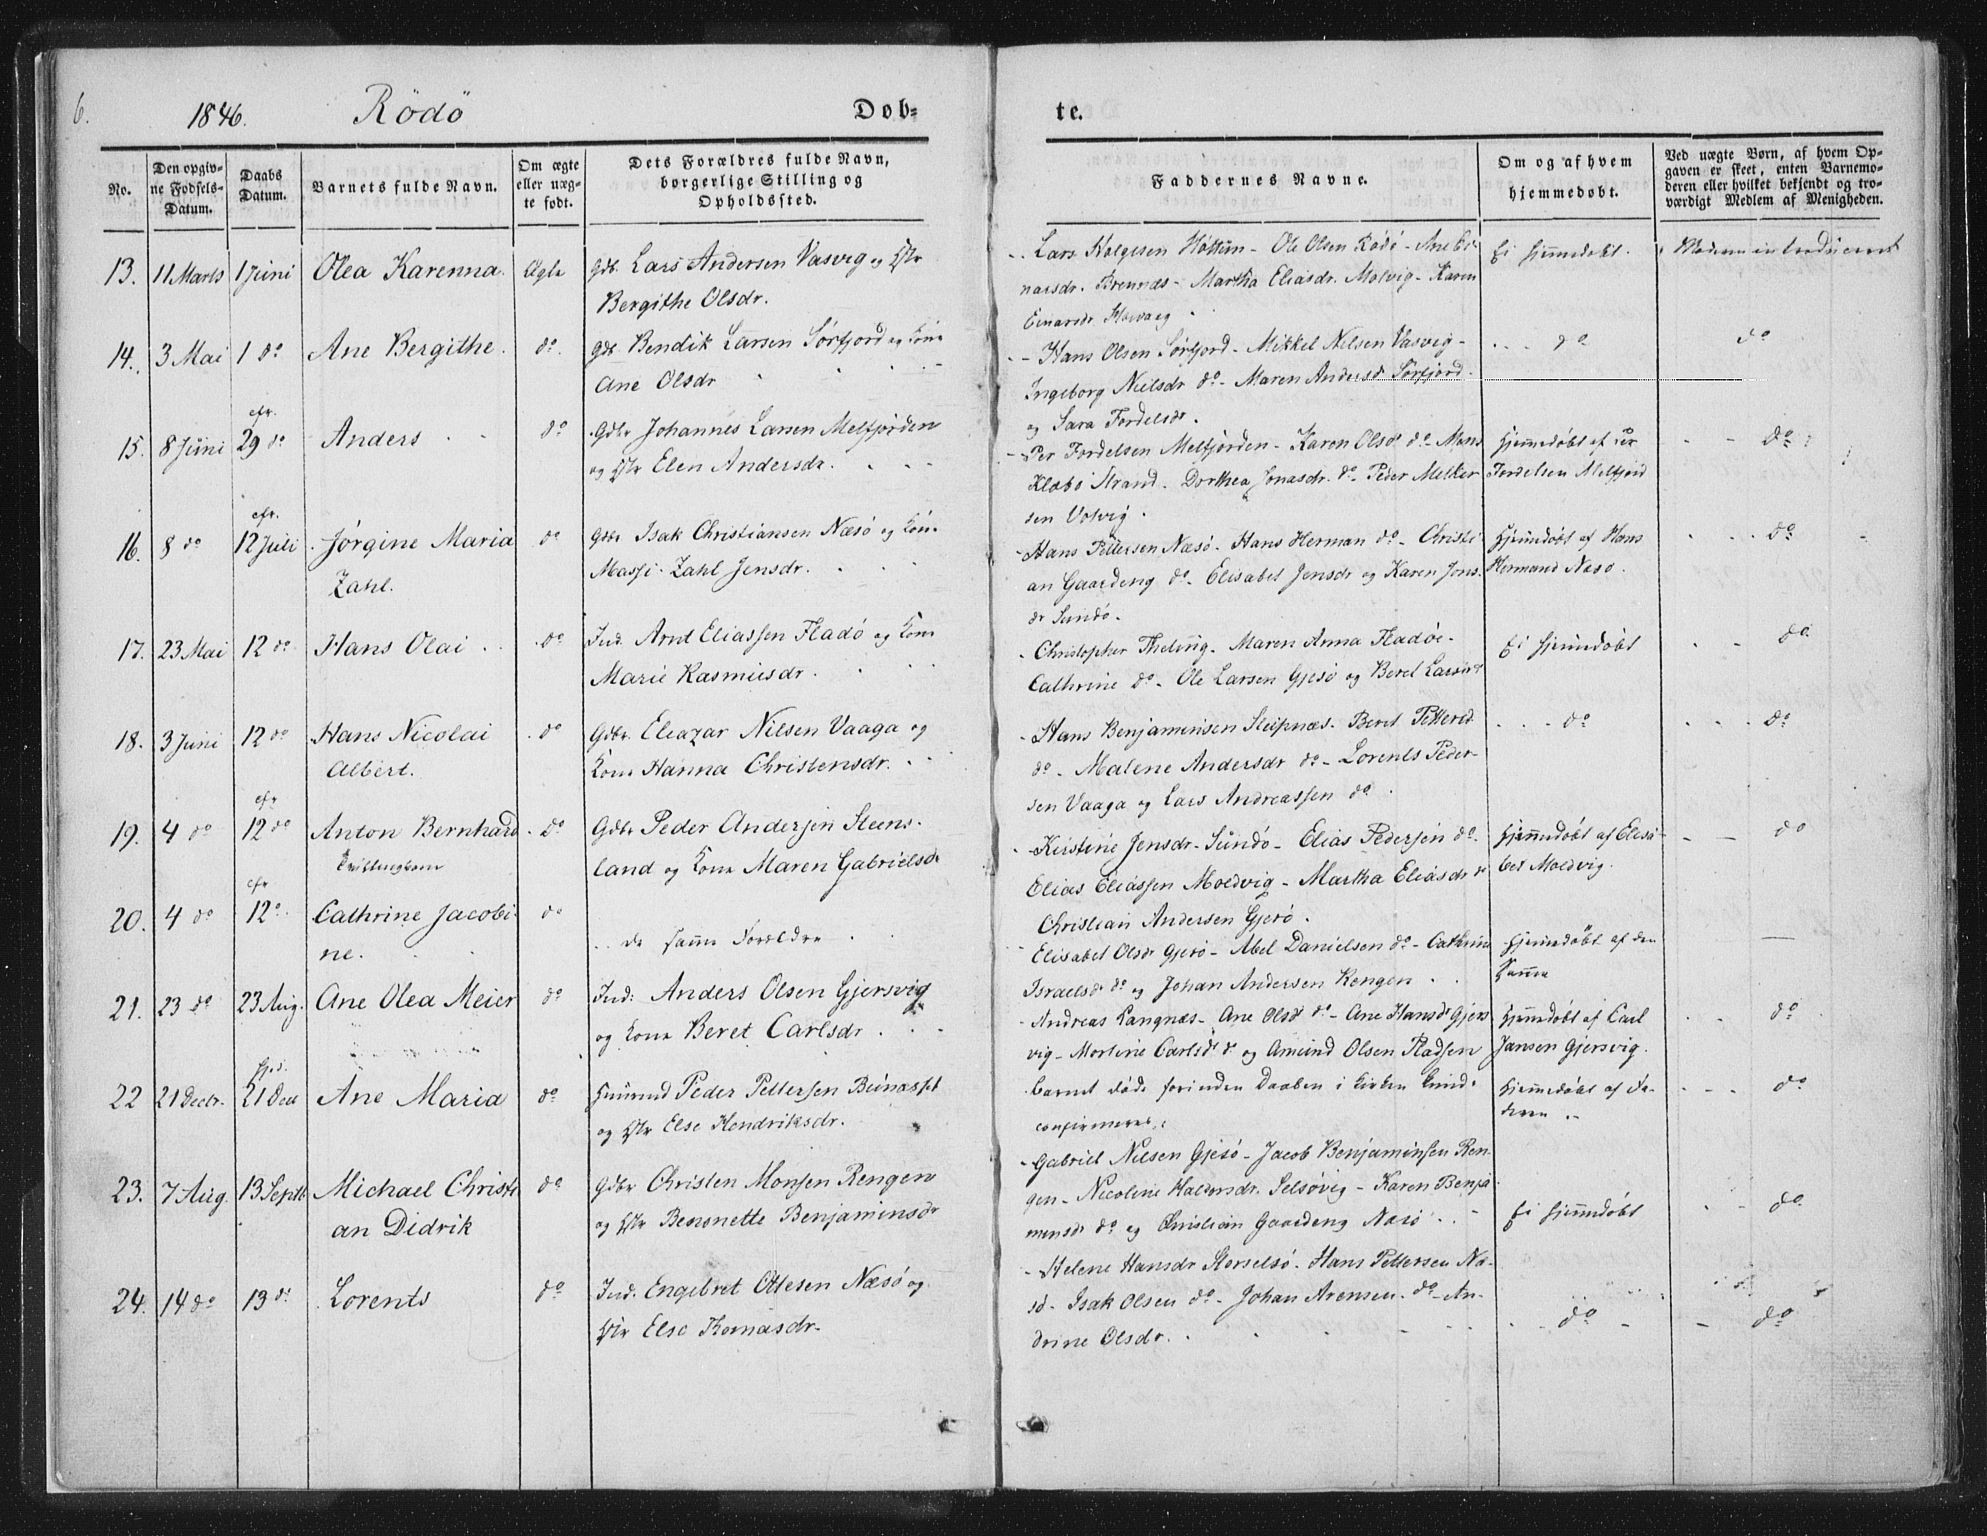 6.
1846. Rödö Dob-
te.
No.
Den opgiv-
ne Fødsels-
Datum.
Daabs
Datum.
Barnets fulde Navn.
Om ægte
eller uæg-
te født.
Dets Forældres fulde Navn,
borgerlige Stilling og
Opholdssted.
Faddernes Navne.
Om og af hvem
hjemmedøbt.
Ved uægte Børn, af hvem Op-
gaven er skeet, enten Barnemo-
deren eller hvilket bekjendt og tro-
værdigt Medlem af Menigheden.
13. 11 Marts 1 Juni Olea Karenna. Ægte Gdb. Lars Andersen Vasvig og Hr
Bergithe Olsdr.
Lars Helgesen Høttun - Ole Olsen Rödö - Ane Ei-
narsdr. Brennæs - Martha Eliasdr. Molvig - Karen
Einarsdr
Ei hjemmedøbt. Moderen introduceret
14. 3 Mai 1 do Ane Bergithe. do. Gdb. Bendik Larsen Sörfjord og Kone
Ane Olsdr
- Hans Olsen Sörfjord - Mikkel Nilsen Vasvig -
Ingeborg Nielsdr do - Maren Andersdr Sörfjord.
og Sara Fordelsdr.
do do
15. 8 Juni efr. 29 do Anders do Gdbr Johannes Larsen Melfjorden
og Hr Elen Andersdr.
Per Fordelsen Melfjorden - Karen Olsdr do - Mons
Klæbo Strand. Dorthea Jonasdr. do - Peder Melker
sen Votvig.
hjemmedøbt af Per
Fordelsen Melfjord
do
16. 8 do efr. 12 Juli Jørgine Maria
Zahl.
do Gdbr Isak Christiansen Næsö og Kone
Massi Zahl Jensdr.
Hans Pettersen Næsö. Hans Herman do - Christi
an Gaardeng do - Elisabet Jensdr og Karen Jens-
dr Sundö.
hjemmedøbt af Hans
Hermand Næsö.
do
17. 23 Mai 12 do Hans Olai do Ind. Arnt Eliassen Fladö og Kone
Marie Rasmusdr.
Christopher - Maren Anna Fladöe -
Cathrine do - Ole Larsen Gjesö og Beret Larsdr
Ei hjemmedøbt do.
18. 3 Juni 12 do Hans Nicolai
Albert.
do Gdbr. Eleazar Nilsen Vaaga og
Kone Hanna Christensdr.
Hans Benjaminsen Sleipnæs. Beret Pettersd
do - Malene Andersdr do - Lorents Peder-
sen Vaaga og Lars Andreassen do
do do
19. 4 do efr 12 do Anton Bernhard
Tvillingbarn
do Gdbr Peder Andersen Steens-
land og Kone Maren Gabrielsdr
Kirstine Jensdr - Sundö - Elias Pedersen do.
Elias Eliassen Moldvig - Martha Eliasdr do
Christian Andersen Gjerö.
hjemmedøbt af Elisa
bet Moldvig.
do
20. 4 do efr 12 do Cathrine Jacobi-
ne.
do de samme Forældre
Elisabet Olsdr Gjerö - Abel Danielsen do - Cathrine
Israelsdr do og Johan Andersen Rengen
hjemmedøbt af den
samme
21. 23 do 23 Aug. Ane Olea Meier do Ind. Anders Olsen Gjersvig
og Kone Beret Carlsdr
Andreas Langnæs - Ane Olsdr do - Ane Hansdr Gjers
vig - Mortine Carlsdr do og Amund Olsen
hjemmedøbt af Carl
Jansen Gjersvig.
do
22 21 Decbr. hjd. 21 Dec Ane Maria do Huusmd Peder Pettersen
og Hr Else Hendriksdr.
barnet døde forinden Daaben i Kirken kunde
confirmeres.
hjemmedøbt af Fa-
deren
do
23. 7 Aug. 13 Septb. Michael Christi
an Didrik
do Gdbr Christen Monsen Rengen
og Hr Benonette Benjaminsdr
Gabriel Nilsen Gjesö - Jacob Benjaminsen Ren-
gen - Nicoline Haldorsdr. Selsövig - Karen Benja
minsdr do og Christian Gaardeng Næsö
Ei hjemmedøbt do
24. 14 do 13 do Lorents do Ind. Engebret Ottesen Næsö og
Hr Else Thomasdr.
Helene Hansdr Storselsö. Hans Pettersen Næ-
sö - Isak Olsen do - Johan Arensen. do - An-
drine Olsdr.
do do